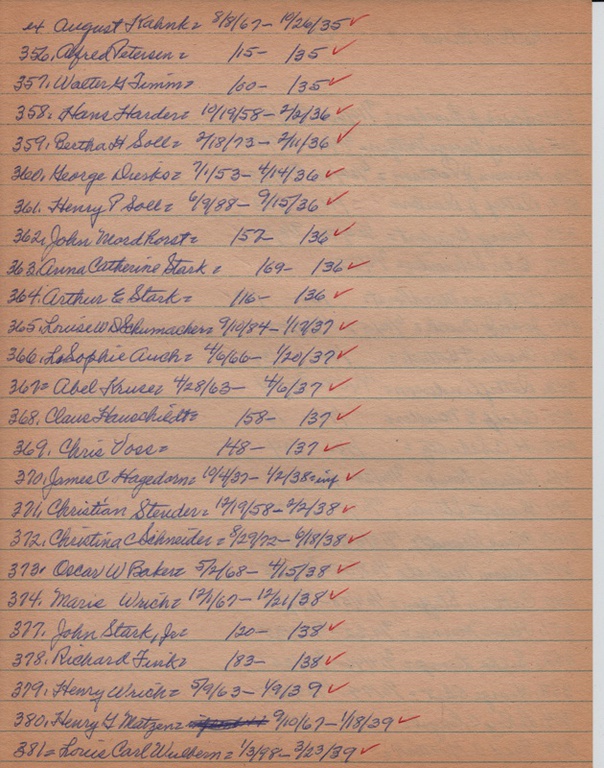 ex August Kahnk = 8/8/67 - 10/26/35 ✓
356, Alfred Petersen = /15 - /35 ✓
357, Walter G Timm = /00 - /35 ✓
358, Hans Harder = 10/19/58 - 2/2/36 ✓
359, Bertha H Soll = 2/18/73 - 2/11/36 ✓
360, George = 7/1/53 - 4/14/36 ✓
361, Henry P Soll = 6/9/88 - 9/15/36 ✓
362, John Mordhorst = /52 - /36 ✓
363. Anna Catherine Stark = /69 - /36 ✓
364. Arthur E Stark = /16 - /36 ✓
365, Louise W D Schumacher = 9/10/84 - 1/17/37 ✓
366, Sophie Auch = 4/6/66 - 1/20/37 ✓
367 = Abel Kruse 4/28/63 - 4/6/37 ✓
368, Claus Hauschildt = /58 - /37 ✓
369, Chris Voss = /48 - /37 ✓
370, James C Hagedorn = 10/4/37 - 1/2/38 = inf ✓
371, Christian Steuder = 12/19/58 - 2/2/38 ✓
372, Christina C Schneider = 8/29/72 - 6/18/38 ✓
373, Oscar W Baker = 5/2/68 - 4/15/38 ✓
374, Marie Wrich = 12/1/67 - 12/21/38 ✓
377, John Stark, Jr = /20 - /38 ✓
378, Richard Fink = /83 - /38 ✓
379, Henry Wrich = 5/9/63 - 1/9/39 ✓
380, Henry G Matzen = 9/10/67 - 1/18/39 ✓
381 = Louis Carl Wulbern = 1/3/98 - 3/23/39 ✓